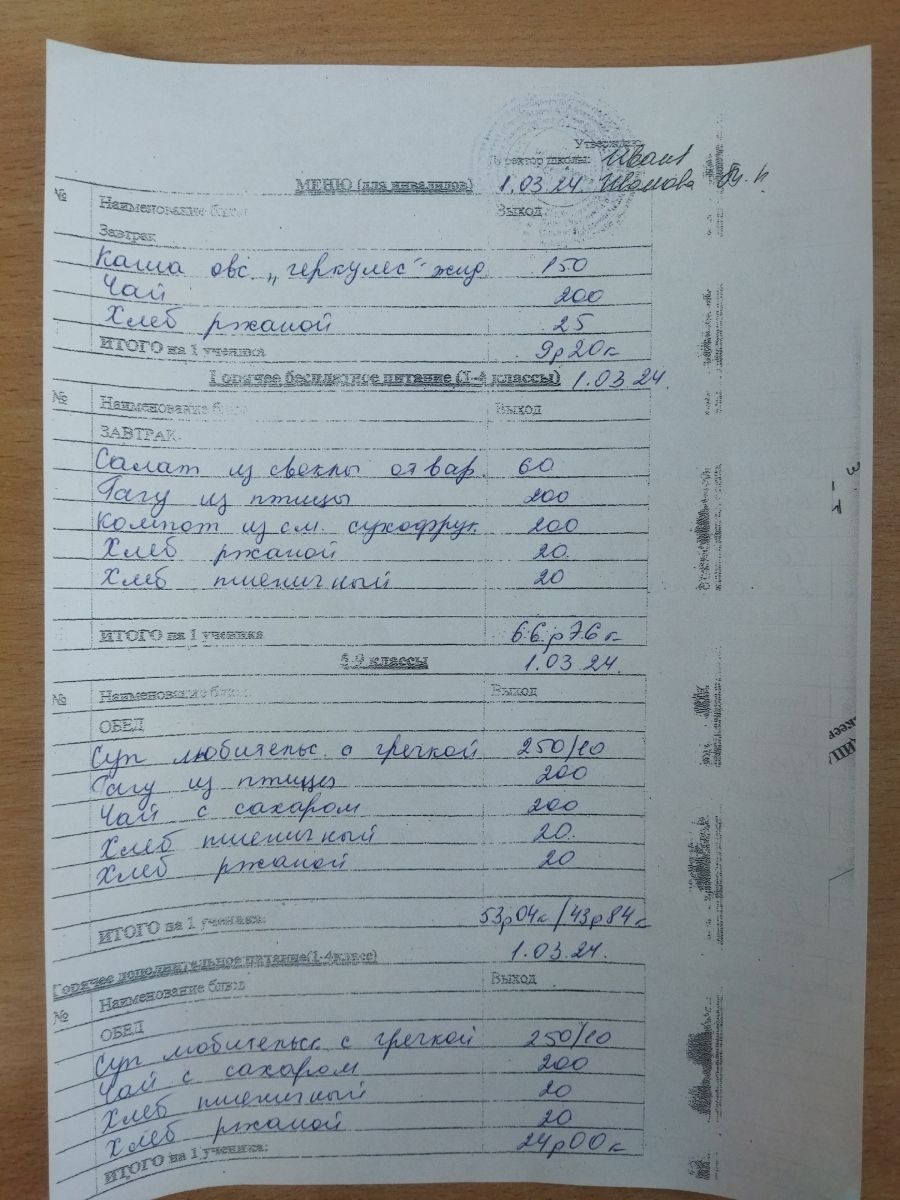 Утверждаю
Директор школы:
МЕНЮ (для инвалидов) 1.03.24 Иванова
№ Наименование блюд Выход
Завтрак
Каша овс. „геркулес" жид 150
Чай 200
Хлеб ржаной 25
ИТОГО на 1 ученика 9р20к
Горячее бесплатное питание (1-4 классы) 1.03.24.
№ Наименование блюд Выход
ЗАВТРАК
Салат из свеклы отвар. 60
Рагу из птицы 200
Компот из см. сухофрук. 200
Хлеб ржаной 20
Хлеб пшеничный 20
ИТОГО на 1 ученика 66р76к
5-9 классы 1.03.24.
№ Наименование блюд Выход
ОБЕД
Суп любительс. с гречкой 250/10
Рагу из птицы 200
Чай с сахаром 200
Хлеб пшеничный 20
Хлеб ржаной 20
ИТОГО на 1 ученика: 53р04к/43р84к
1.03.24.
Горячее дополнительное питание(1-4класс)
№ Наименование блюд Выход
ОБЕД
Суп любительск. с гречкой 250/10
Чай с сахаром 200
Хлеб пшеничный 20
Хлеб ржаной 20
ИТОГО на 1 ученика: 24р00к